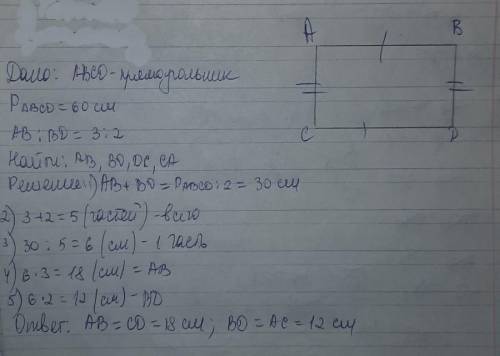 A B
Дано: ABCD - прямоугольник
PABCD = 60 см
AB : BD = 3 : 2
C D
Найти: AB, BD, DC, CA
Решение: 1) AB + BD = PABCD : 2 = 30 см
2) 3+2 = 5 (частей) - всего
3) 30 : 5 = 6 (см) - 1 часть
4) 6 · 3 = 18 (см) = AB
5) 6 · 2 = 12 (см) - BD
Ответ. AB = CD = 18 см; BD = AC = 12 см